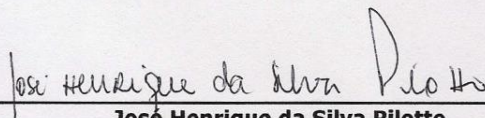 José Henrique da Silva Pilotto
José Henrique da Silva Pilotto